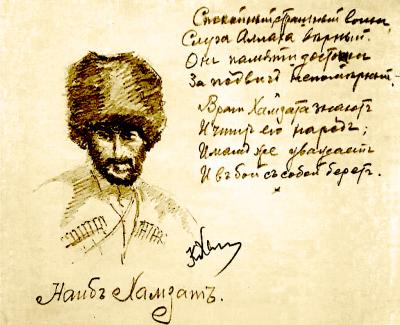 Спокойный страшный воин
Слуга Аллаха вѣрный.
Онъ памяти достоин
За подвигъ непомѣрный.
Враги Хамзата знаютъ
И чтит его народъ;
Имам же уважаетъ
И въ бой съ собой беретъ.
Наибъ Хамзатъ.